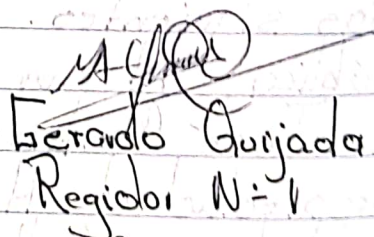 Gerardo Quijada
Regidor N=1